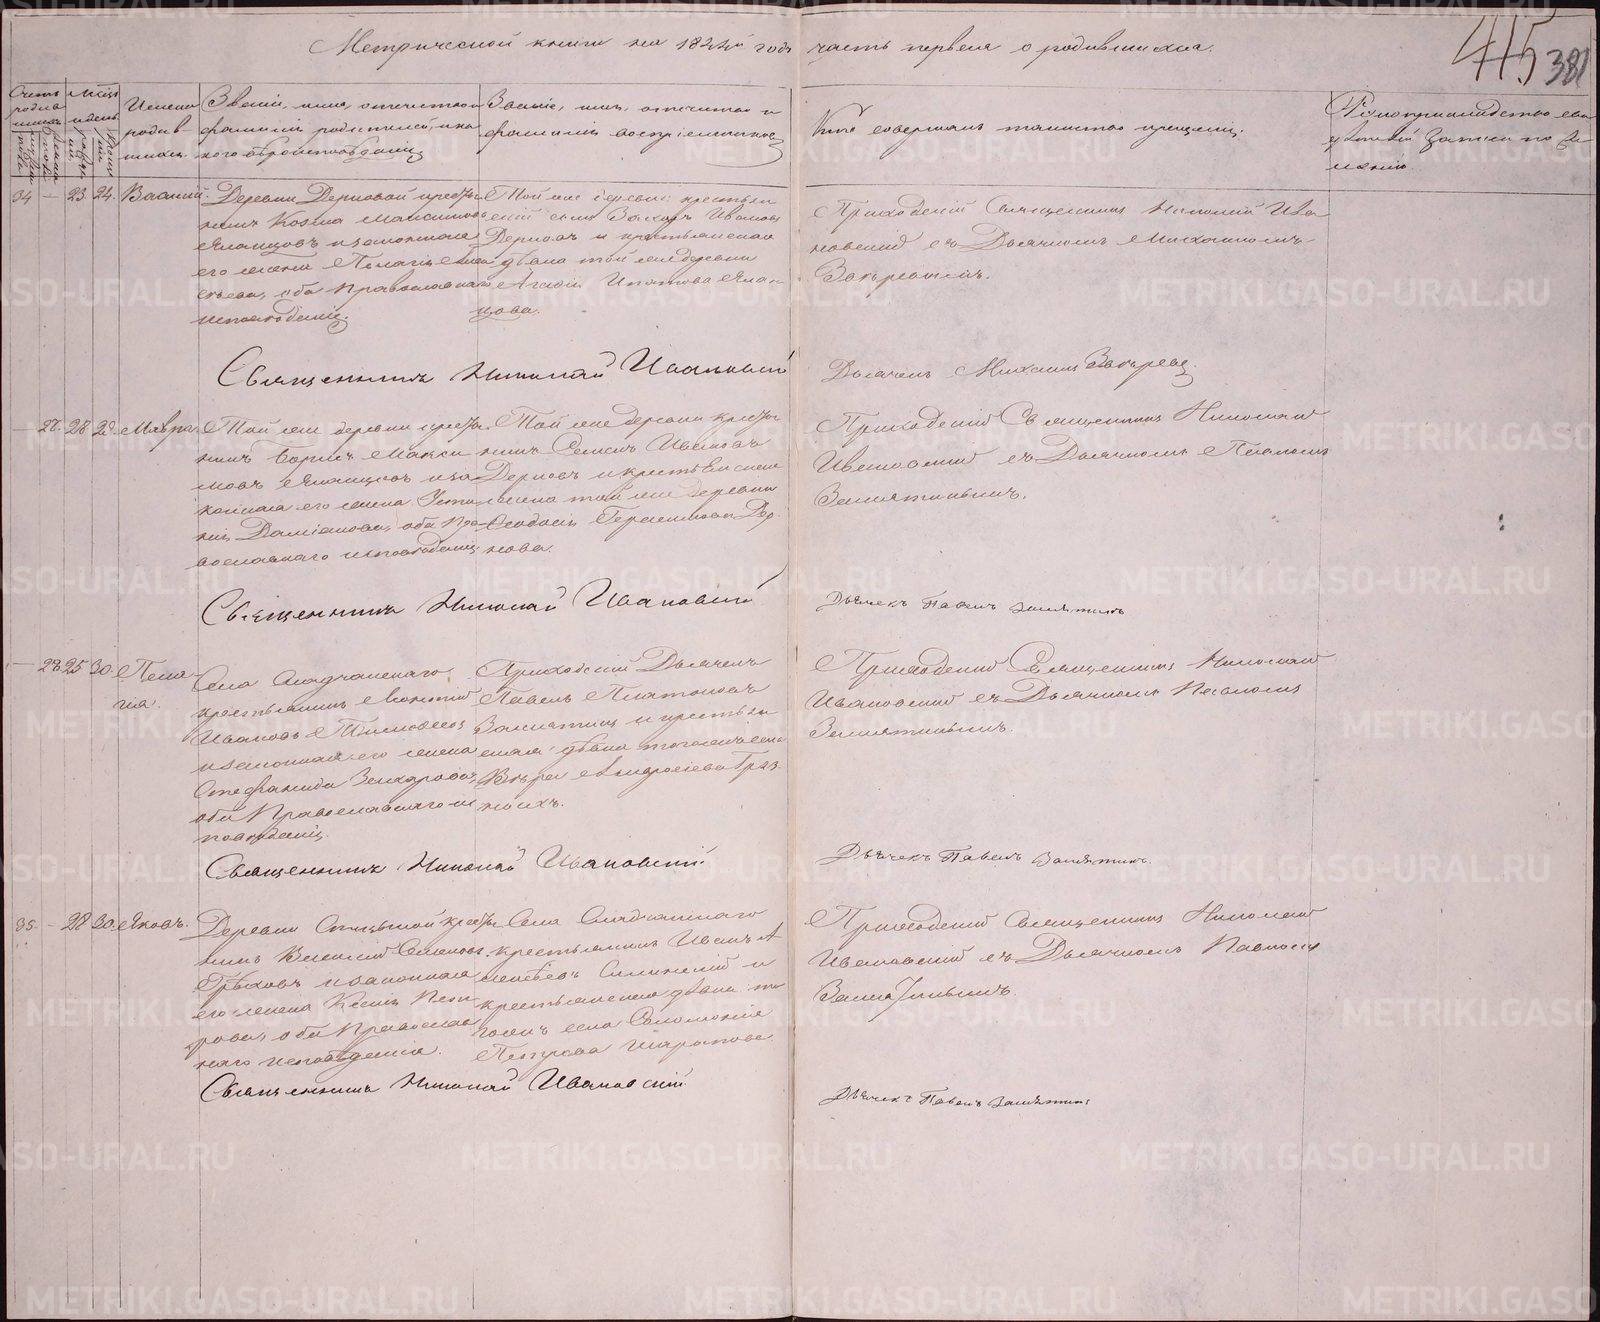 Метрической книги на 18 годъ часть первая о родившихся.
415
381
Счетъ родив-
шихся
Мѣсяцъ
и день
Имена
родив-
шихся.
Званіе, имя, отчество и
фамилія родителей, и ка-
кого вѣроисповѣданія
Званіе, имя, отчество и
фамилія воспріемниковъ
Кто совершалъ таинство крещенія.
Рукоприкладство сви-
дѣтелей записи по же-
ланію.
34 — 23. 24. Василій.
Деревни Дерновой кресть-
нинъ Козма Максимовъ
и законная
его жена Пелагія
оба православнаго
исповѣданія.
Той же деревни крестьян
скій сынъ Захаръ Ивановъ
Дерновъ и крестьянская
дѣвка той же деревни
Ипатова
цова.
Приходскій Священникъ Николай Ива-
новский съ Дьячкомъ Михаиломъ
Священникъ Николай Ивановскій
Дьячекъ Михаилъ
— 27. 28 29. Мавра.
Той же деревни кресть-
нинъ Борисъ Макси
мовъ и за
конная его жена Усти
нія Даміанова, оба пра-
вославнаго исповѣданія
Той же деревни кресть-
нинъ Ивановъ
Дерновъ и крестьянская
жена той же деревни
Феодосія Герасимова Дер-
нова.
Приходскій Священникъ Николай
Ивановский съ Дьячкомъ Павломъ
Замятинымъ.
Священникъ Николай Ивановскій
Дьячекъ Павелъ Замятинъ
— 28 25 30 Пела-
гія.
Села Сладчанскаго
крестьянинъ
Ивановъ
и законная его жена
Стефанида
оба Православнаго ис
повѣданія.
Приходскій Дьячекъ
Павелъ Платоновъ
Замятинъ и крестьян
ская дѣвка того же села
Вѣра Андроніева Гряз-
ныхъ.
Приходский Священникъ Николай
Ивановский съ Дьячкомъ Павломъ
Замятинымъ.
Священникъ Николай Ивановскій
Дьячекъ Павелъ Замятинъ.
35. — 28 30. Яковъ.
Деревни кресть-
нинъ Василій Семеновъ
Грѣховъ и законная
его жена Ксенія Пет
рова, оба Православ
наго исповѣданія.
Села Сладчанскаго
крестьянинъ Иванъ
и
крестьянская дѣвка то
гожъ села Соломонія
Петрова Шарапова
Приходский Священникъ Николай
Ивановский съ Дьячкомъ Павломъ
Замятинымъ.
Священникъ Николай Ивановскій
Дьячекъ Павелъ Замятинъ
METRIKI.GASO-URAL.RU